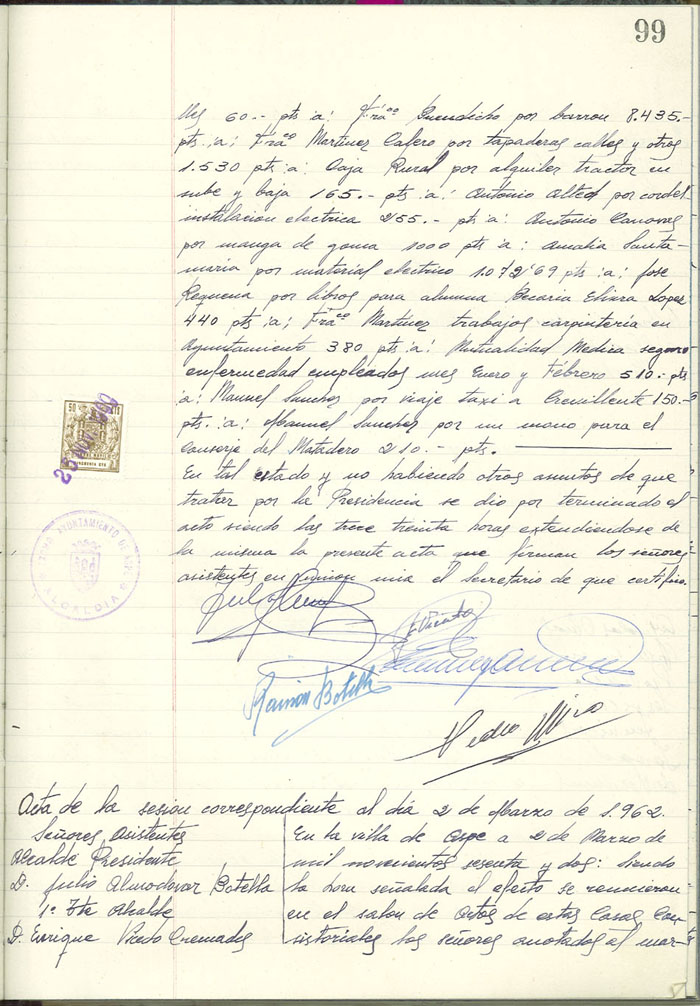 99
Mes 60.- pts :a: Frа​co por barrou 8.435.-
pts :a: Fraco Martinez Cafero por tapaderas calles y otros
1.530 pts :a: Caja Rural por alquiler tractor en
sube y baja 165.- pts :a: Antonio Alted por cordel
instalacion electrica 255.- pts :a: Antonio Canovas
por manga de goma 1000 pts :a: Amalia Santa-
maria por material electrico 1.072'69 pts :a: Jose
Requena por libros para alumna Becaria Elvira Lopez
440 pts :a: Fraco Martinez trabajos carpinteria en
Ayuntamiento 380 pts :a: Mutualidad Medica seguro
enfermedad empleados mes Enero y Febrero 510.- pts
:a: Manuel Sanchez por viaje taxi a Crevillente 150.-
pts. :a: Manuel Sanchez por un mono para el
Conserje del Matadero 210.- pts.
En tal estado y no habiendo otros asuntos de que
tratar por la Presidencia se dio por terminado el
acto siendo las trece treinta horas extendiendose de
la misma la presente acta que firman los señores
asistentes en union mia el Secretario de que certifico.
50 10
AYUNTAMIENTO DE
ALCALDIA
Ramón Botella
Pedro Miro
Acta de la sesion correspondiente al día 2 de Marzo de 1.962.
Señores Asistentes
Alcalde Presidente
D. Julio Almodovar Botella
1º Tte Alcalde
D. Enrique Vicedo Cremades
En la villa de Aspe a 2 de Marzo de
mil novecientos sesenta y dos: siendo
la hora señalada al efecto se reunieron
en el salon de Actos de estas Casas Con-
sistoriales los señores anotados al mar-